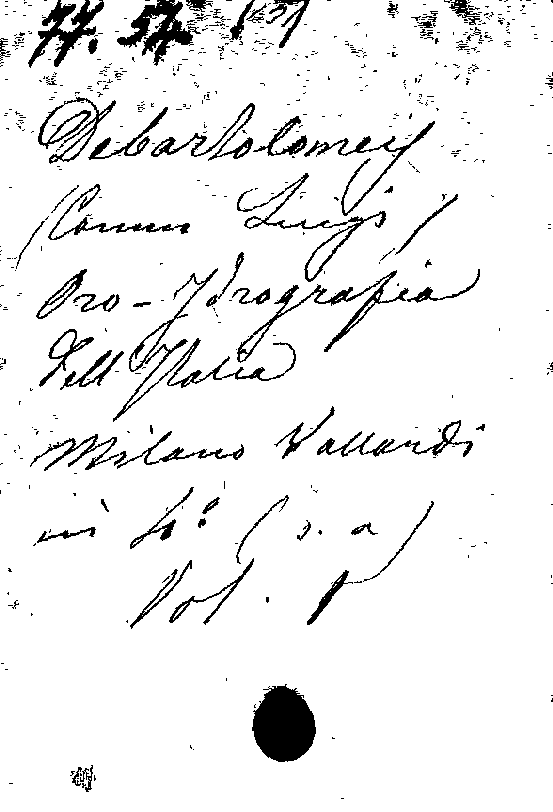 77. 57.
Debartolomeis
(Comm Luigi)
Oro-Idrografia
dell' Italia
Milano Vallardi
in 4.° (s. a)
Vol. 1